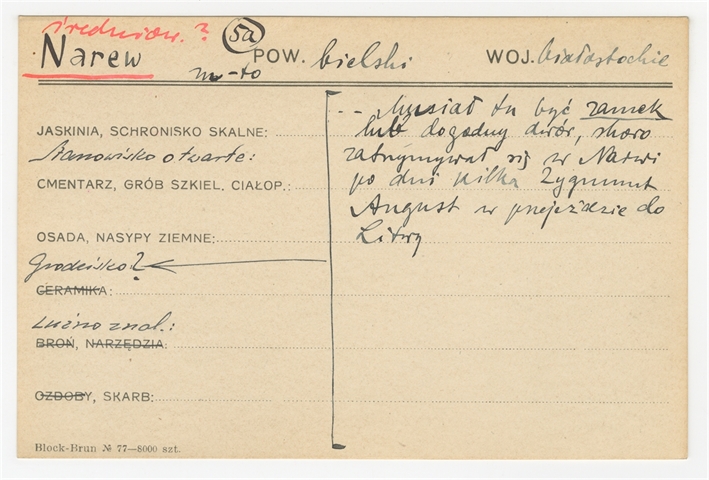 średniow. ?
5a
Narew POW. bielski WOJ. białostockie
m-to
JASKINIA, SCHRONISKO SKALNE:
Stanowisko otwarte:
CMENTARZ, GRÓB SZKIEL. CIAŁOP.:
OSADA, NASYPY ZIEMNE:
Grodzisko?
CERAMIKA:
Luźno znal.:
BROŃ, NARZĘDZIA:
OZDOBY, SKARB:
Block-Brun № 77—8000 szt.
-- Musiał tu być zamek
lub dogodny dwór, skoro
zatrzymywał się w Narwi
po dni kilka Zygmunt
August w przejeździe do
Litwy